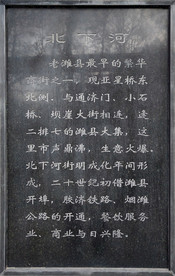 北下河
老潍县最早的繁华
商街之一，现亚星桥东
北侧、与通济门、小石
桥、坝崖大街相连，逢
二排七的潍县大集，这
里市声鼎沸，生意火爆。
北下河街明成化年间形
成，二十世纪初借潍县
开埠，胶济铁路、烟潍
公路的开通，餐饮服务
业、商业与日兴隆。